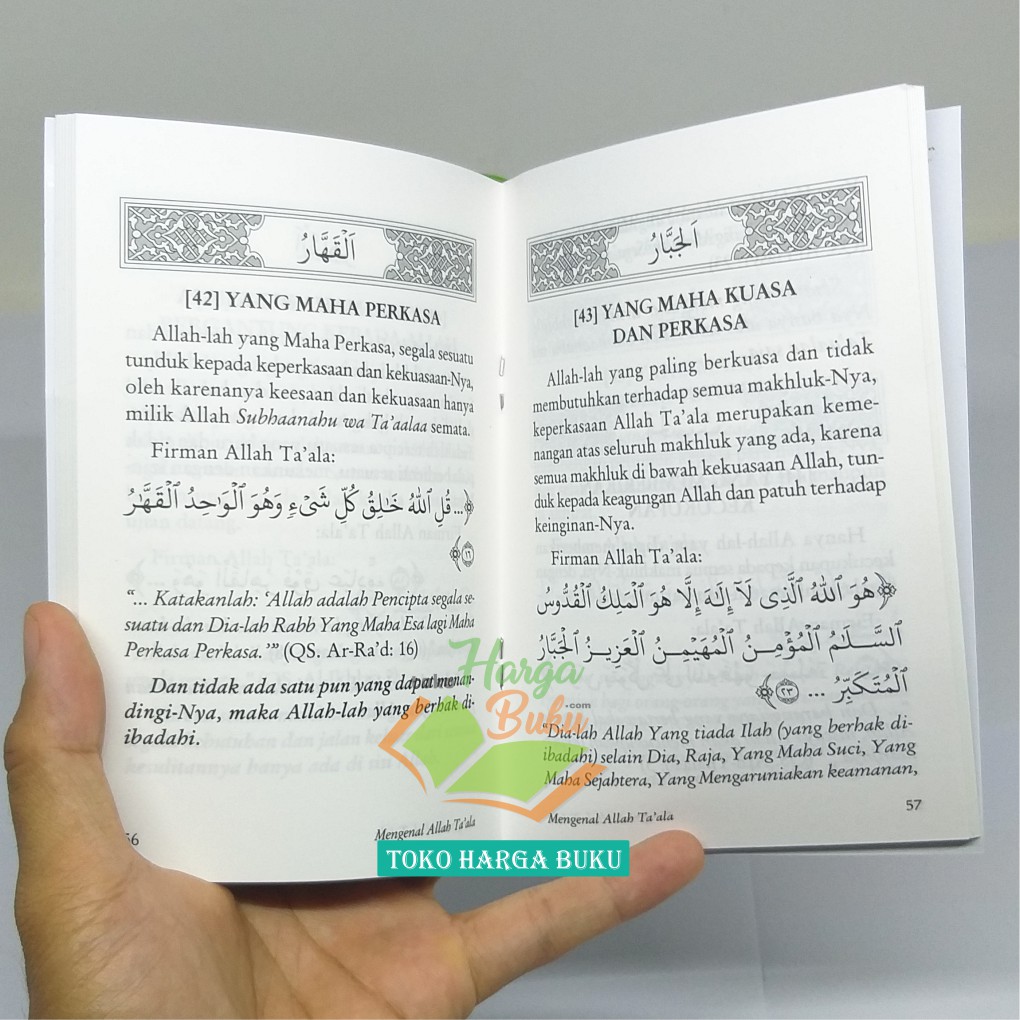 اَلْقَهَّارُ
[42] YANG MAHA PERKASA
Allah-lah yang Maha Perkasa, segala sesuatu
tunduk kepada keperkasaan dan kekuasaan-Nya,
oleh karenanya keesaan dan kekuasaan hanya
milik Allah Subhaanahu wa Ta'aalaa semata.
Firman Allah Ta'ala:
﴿... قُلِ ٱللَّهُ خَـٰلِقُ كُلِّ شَىْءٍ وَهُوَ ٱلْوَٰحِدُ ٱلْقَهَّـٰرُ
﴾١٦
“... Katakanlah: ‘Allah adalah Pencipta segala se-
suatu dan Dia-lah Rabb Yang Maha Esa lagi Maha
Perkasa Perkasa.’” (QS. Ar-Ra’d: 16)
Dan tidak ada satu pun yang dapat menan-
dingi-Nya, maka Allah-lah yang berhak di-
ibadahi.
56
Mengenal Allah Ta'ala
اَلْجَبَّارُ
[43] YANG MAHA KUASA
DAN PERKASA
Allah-lah yang paling berkuasa dan tidak
membutuhkan terhadap semua makhluk-Nya,
keperkasaan Allah Ta'ala merupakan keme-
nangan atas seluruh makhluk yang ada, karena
semua makhluk di bawah kekuasaan Allah, tun-
duk kepada keagungan Allah dan patuh terhadap
keinginan-Nya.
Firman Allah Ta'ala:
﴿هُوَ ٱللَّهُ ٱلَّذِى لَآ إِلَـٰهَ إِلَّا هُوَ ٱلْمَلِكُ ٱلْقُدُّوسُ
ٱلسَّلَـٰمُ ٱلْمُؤْمِنُ ٱلْمُهَيْمِنُ ٱلْعَزِيزُ ٱلْجَبَّارُ
ٱلْمُتَكَبِّرُ ... ٢٣﴾
“Dia-lah Allah Yang tiada Ilah (yang berhak di-
ibadahi) selain Dia, Raja, Yang Maha Suci, Yang
Maha Sejahtera, Yang Mengaruniakan keamanan,
57
Mengenal Allah Ta'ala
Harga
Buku.com
TOKO HARGA BUKU